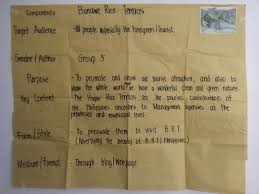 Components Banawe Rice Terraces
Target Audience - All people especially the foreigners / tourist.
Gender / Author Group 5
Purpose - To promote and show our tourist attraction, and also to
show the whole world how a wonderful clean and green nature
Key Content - The Ifugao Rice Terraces are the priceless contribution of the
Philippines ancestors to Management agencies at
the provincial and municipal level.
Form / Style - To persuade them to visit B.R.T.
(Advertising the beauty of B.R.T / Philippines)
Medium / Format - Through blog / Web page